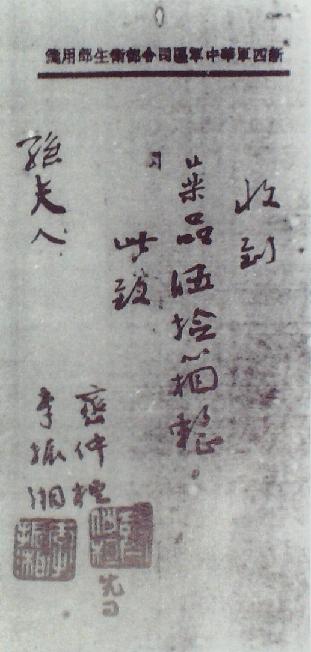 新四軍華中軍區司令部衛生部用箋
收到
藥品伍拾箱整。
此致
孫夫人
齊仲桓
李振湘